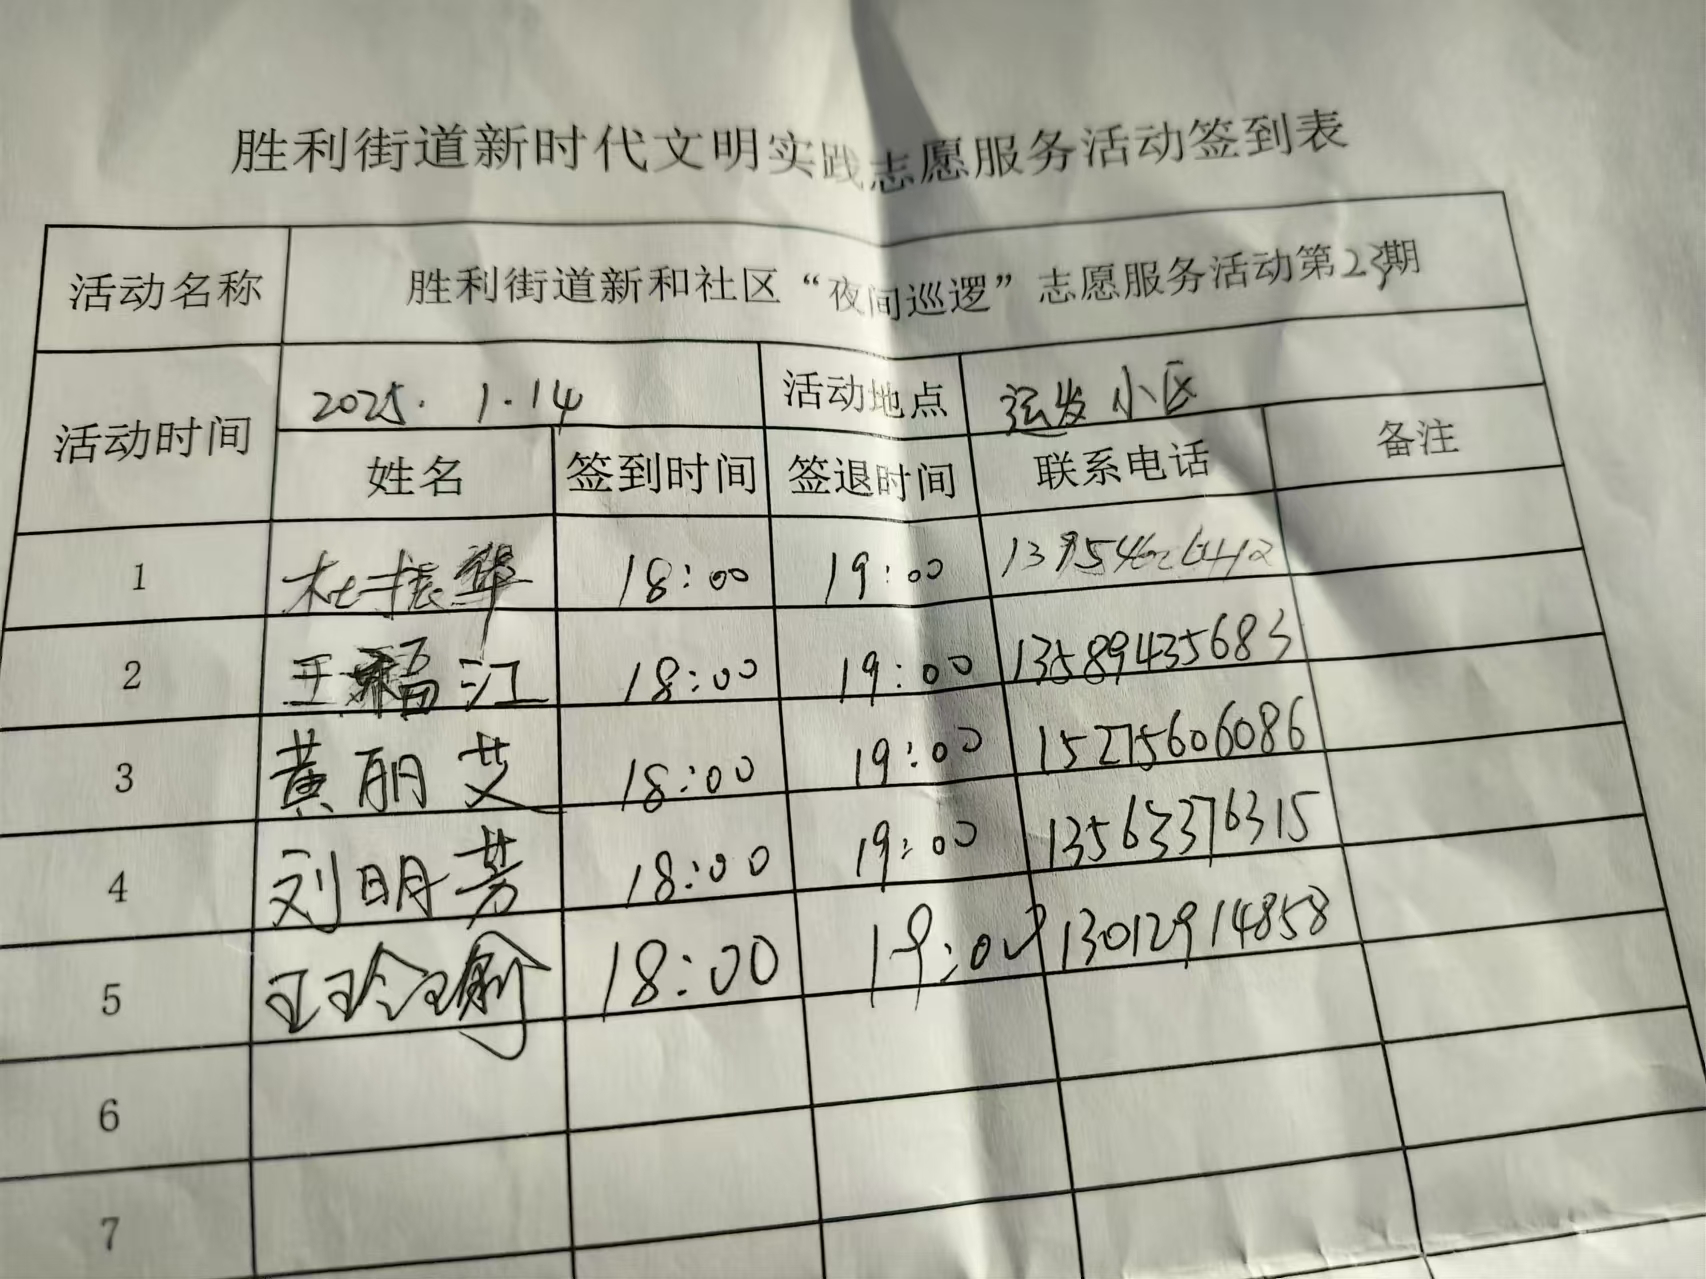 胜利街道新时代文明实践志愿服务活动签到表
活动名称 胜利街道新和社区“夜间巡逻”志愿服务活动第23期
活动时间 2025.1.14 活动地点 运发小区
姓名 签到时间 签退时间 联系电话 备注
1 杜振华 18:00 19:00
2 王福江 18:00 19:00 13589435683
3 黄丽艾 18:00 19:00 15275606086
4 刘明芳 18:00 19:00 13563376315
5 王玲瑜 18:00 19:00 13012914858
6
7